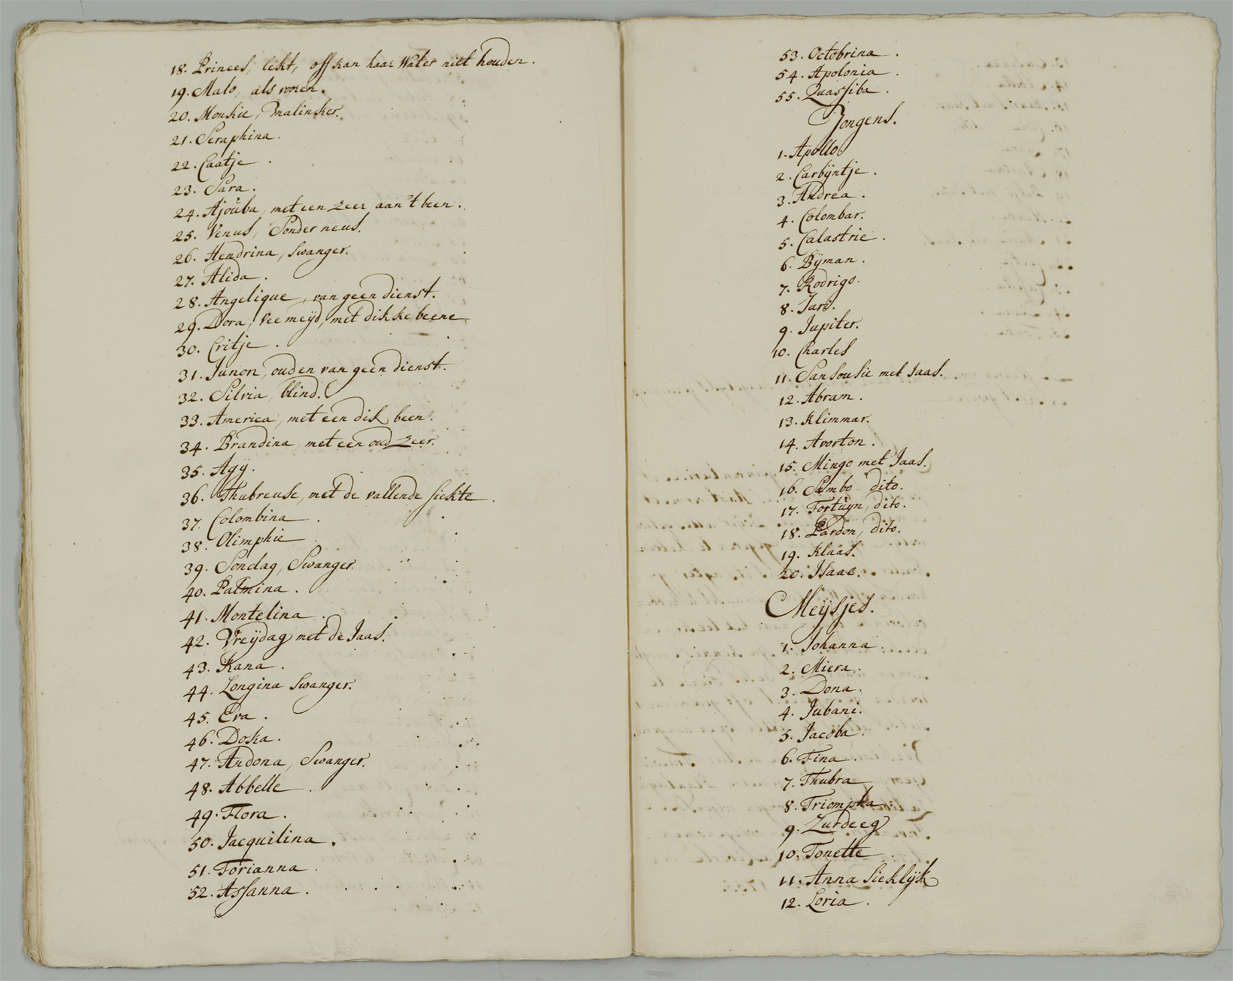 18. Princes, lekt, off kan haar Water niet houden.
19. Malo, als voren.
20. Monkie, Malinker.
21. Seraphina.
22. Caatje.
23. Sara.
24. Ajoúba, met een Zeer aan't been.
25. Venus, Sonder neus.
26. Hendrina, Swanger.
27. Alida.
28. Angelique, van geen dienst.
29. Dora, Vee meyd, met dikke beene
30. Critje.
31. Junon, ouden van geen dienst.
32. Silvia, blind.
33. America, met een dik been.
34. Brandina, met een oud Zeer.
35. Agÿ.
36. Thubreuse, met de vallende siekte.
37. Colombina.
38. Olimphie
39. Sondag, Swanger.
40. Palmina.
41. Montelina.
42. Vreÿdag met de Jaas.
43. Kana.
44. Longina Swanger.
45. Eva.
46. Doska.
47. Andona, Swanger.
48. Abbelle.
49. Flora.
50. Jacquilina.
51. Forianna.
52. Assanna.
53. Octobrina.
54. Apolonia.
55. Quassiba.
Jongens.
1. Apollo
2. Carbÿntje.
3. Andrea.
4. Colombar.
5. Calastrie.
6. Bÿman.
7. Rodrigo.
8. Jurs.
9. Jupiter.
10. Charles
11. Sansousie met Jaas.
12. Abram.
13. Klimmar.
14. Avorton.
15. Mingo met Jaas.
16. Sambo dito.
17. Fortuÿn, dito.
18. Pardon, dito.
19. Klaas.
20. Isaac.
Meÿsjes.
1. Johanna.
2. Miera.
3. Dona.
4. Jubani.
5. Jacoba.
6. Fina.
7. Thubra
8. Triompha
9. Zurdeeg
10. Tonette.
11. Anna Sieklÿk
12. Loria.